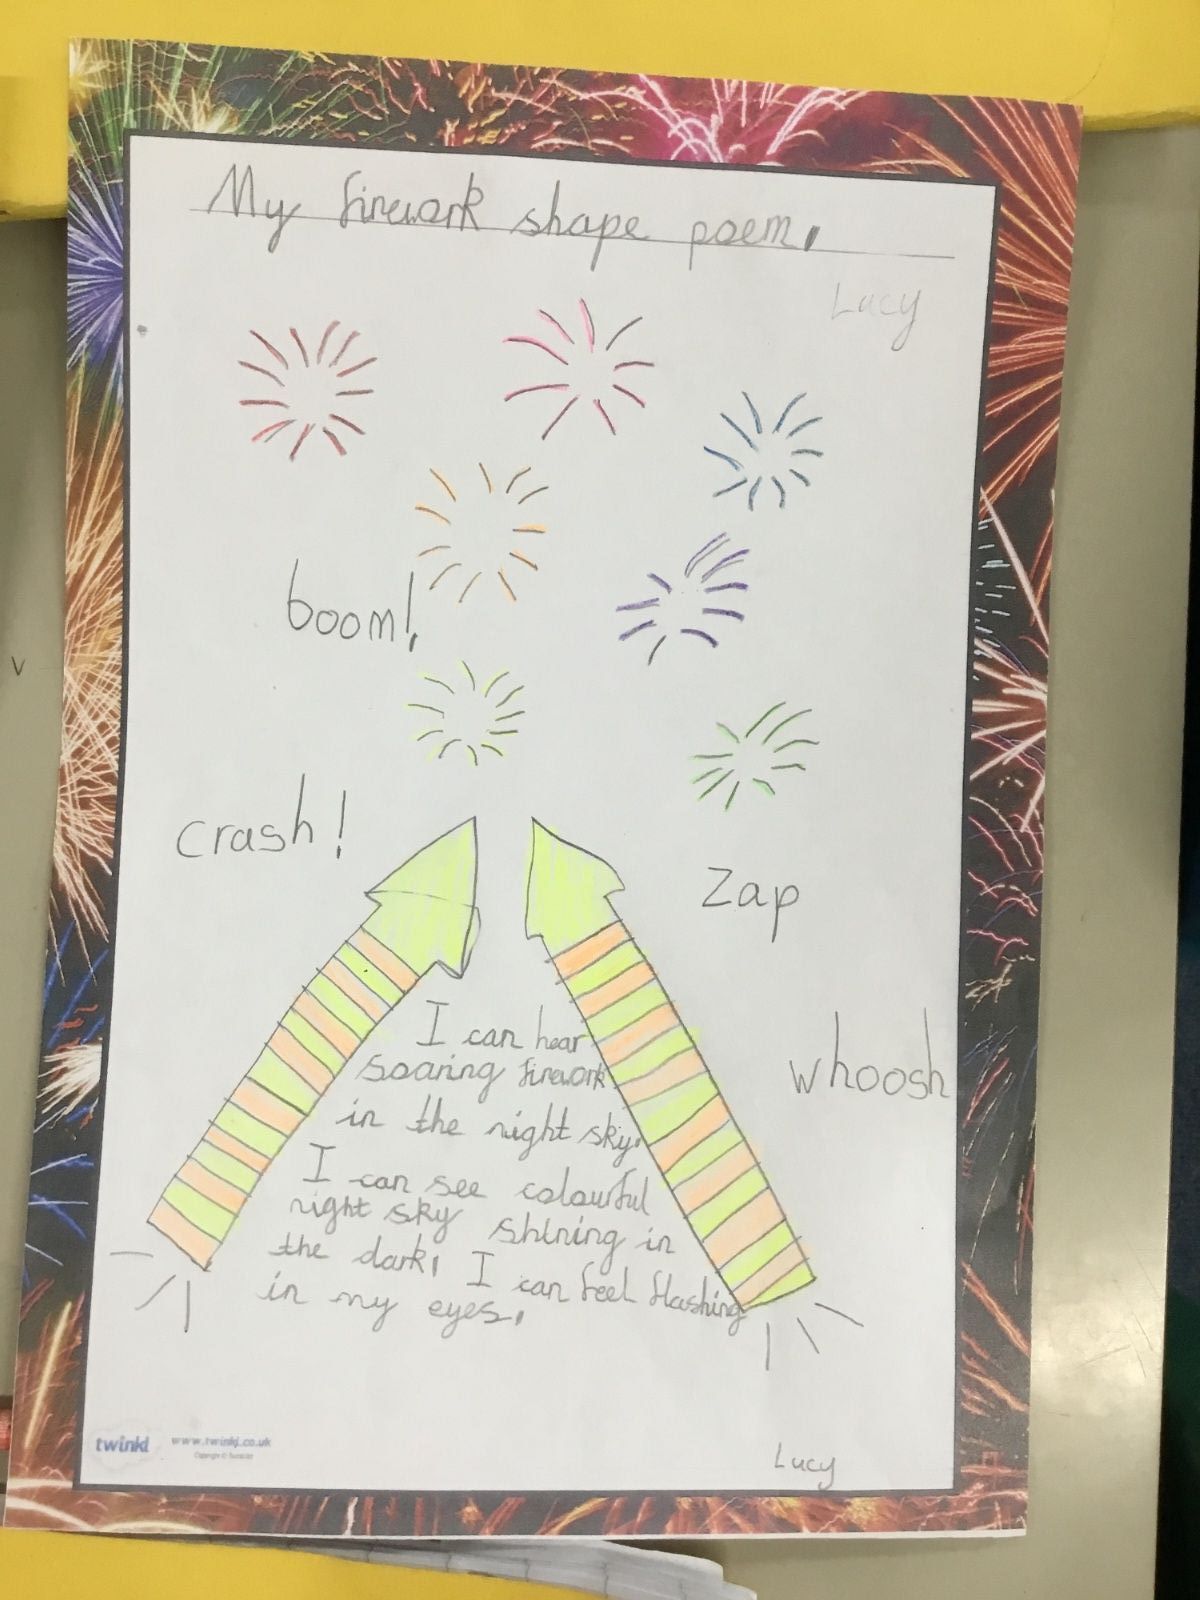 My firework shape poem.
Lucy
boom!
crash!
Zap
whoosh
I can hear
soaring firework
in the night sky.
I can see colourful
night sky shining in
the dark. I can feel flashing
in my eyes.
twinkl www.twinkl.co.uk
Lucy